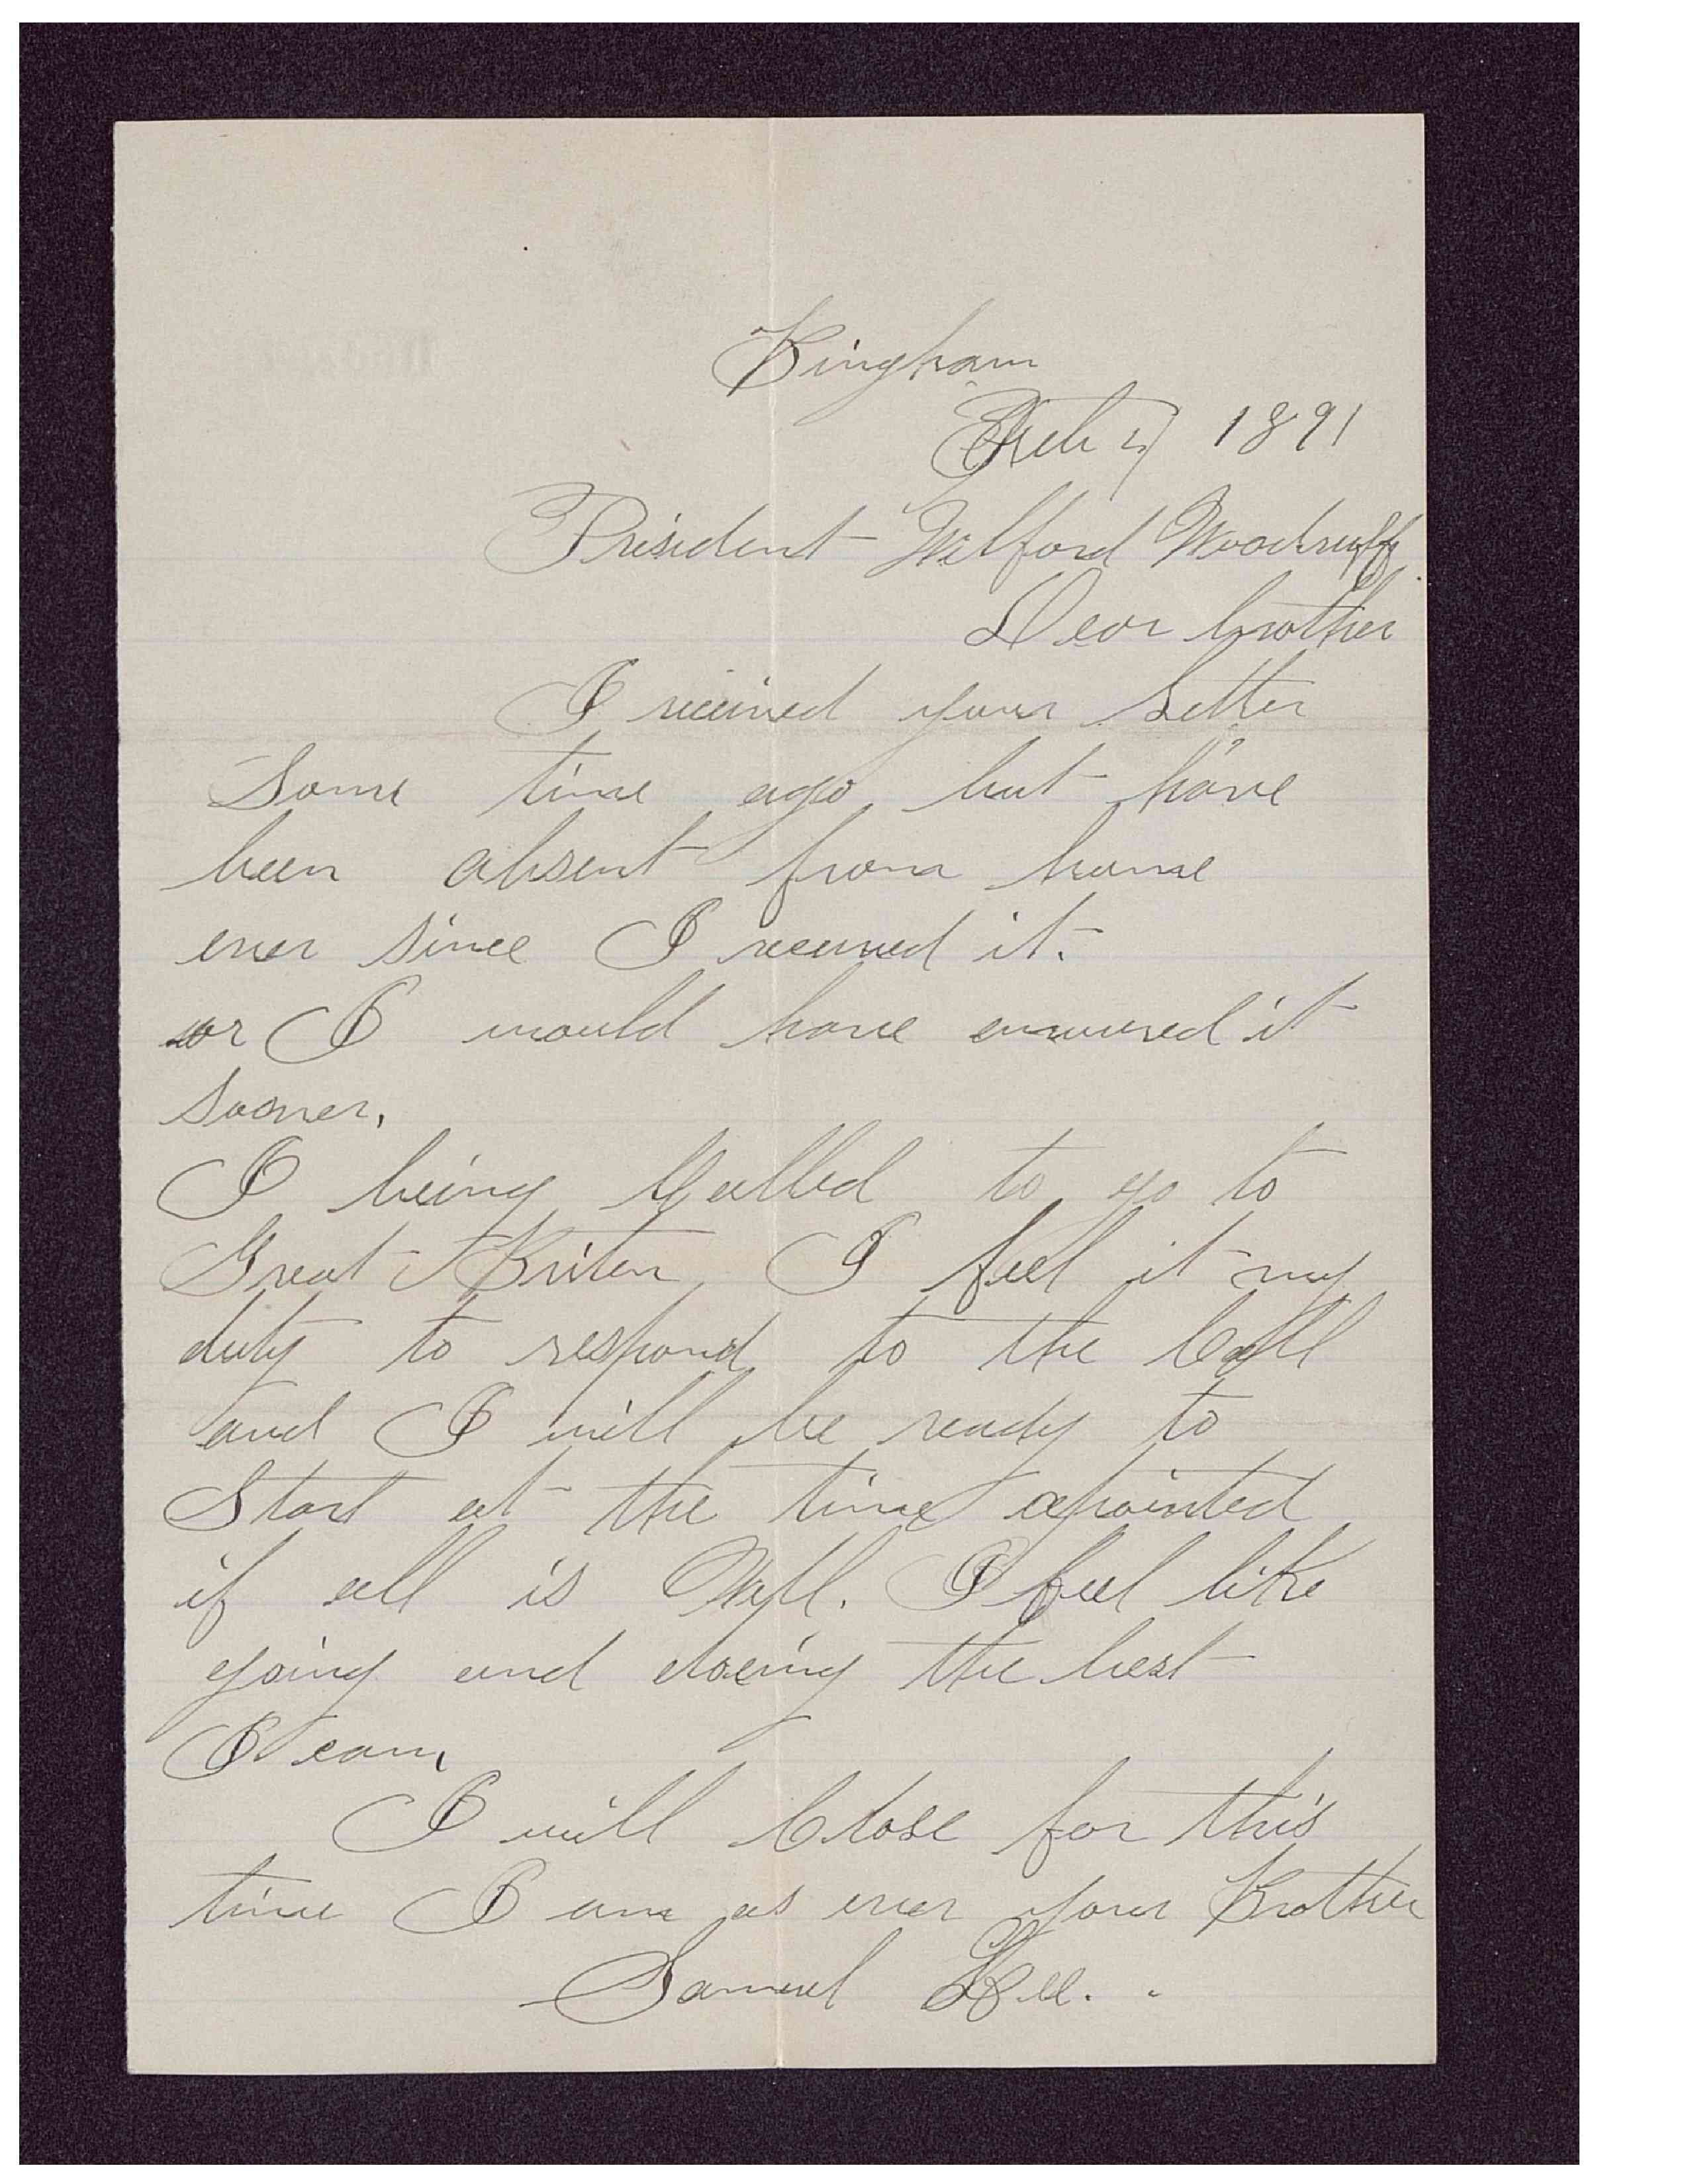 Bingham
Feb 7 1891
President Wilford Woodruff.
Dear brother
I received your Letter
Some time ago, but have
been absent from home
ever since I received it.
or I would have answered it
sooner.
I being Called to go to
Great Briten, I feel it my
duty to respond to the Call
and I will be ready to
Start at the time apointed
if all is Well. I feel like
going and doeing the best
I can,
I will Close for this
time I am as ever your Brother
Samuel Lee.